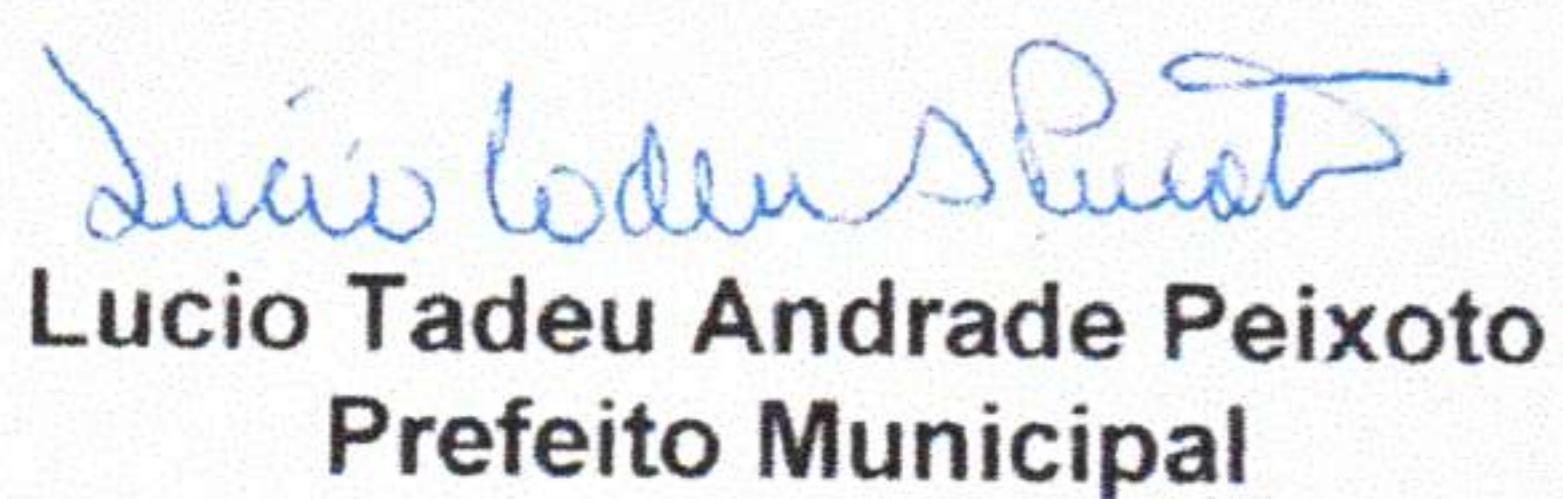 Lucio Tadeu A Peixoto
Lucio Tadeu Andrade Peixoto
Prefeito Municipal